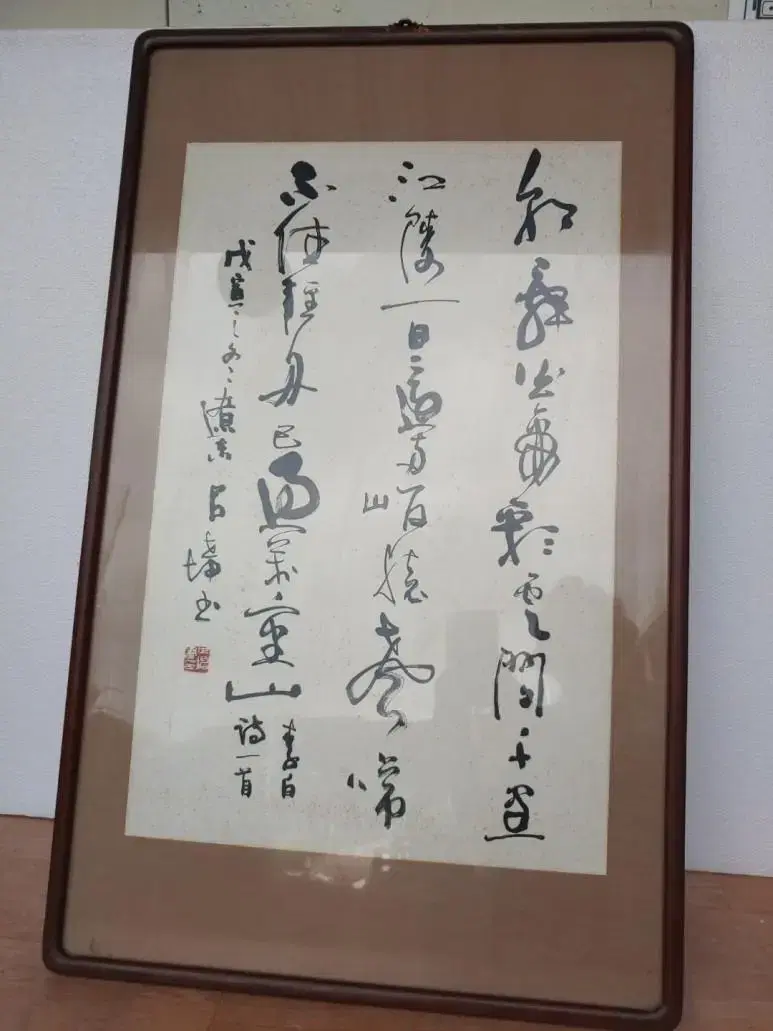 朝辭白帝彩雲間千里
江陵一日還兩岸猿聲啼
不住輕舟已過萬重山
李白
詩一首
戊寅之冬 書